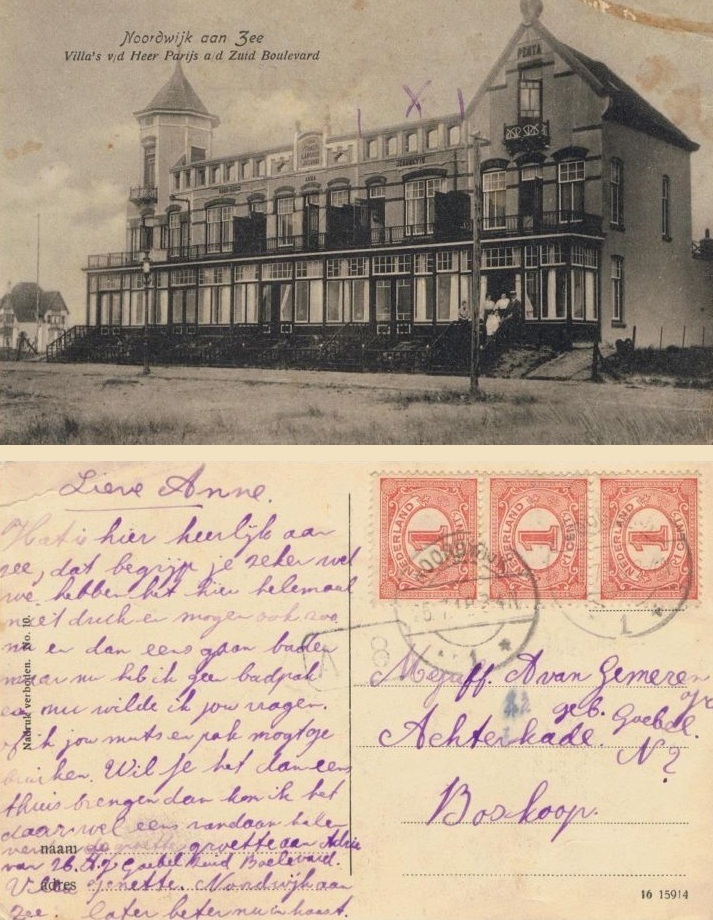 Noordwijk aan Zee
Villa's v/d Heer Parijs a/d Zuid Boulevard
PENTA
X
Lieve Anne.
Hat is hier heerlijk aan
zee, dat begrijp je zeker wel
we hebben het hier helemaal
niet druk en mogen ook zoo
nu en dan eens gaan baden
maar nu heb ik geen badpak
en nu wilde ik jou vragen.
of ik jou muts en pak mogt
bruiken. Wil je het dan eens
thuis brengen dan kan ik het
daar wel eens vandaan halen
groette aan Adrie
van H. J. Goebel Zuid Boelevard.
Villa Jenette. Nordwijk aan
Zee. later beter nu in haast.
naam
adres
Nadruk verboden. No. 10.
NEDERLAND 1 CENT
NEDERLAND 1 CENT
NEDERLAND 1 CENT
1
1
8
Mejuff. A van Gemeren
geb. Goebel.
Achterkade. No 2
Boskoop.
16 15914